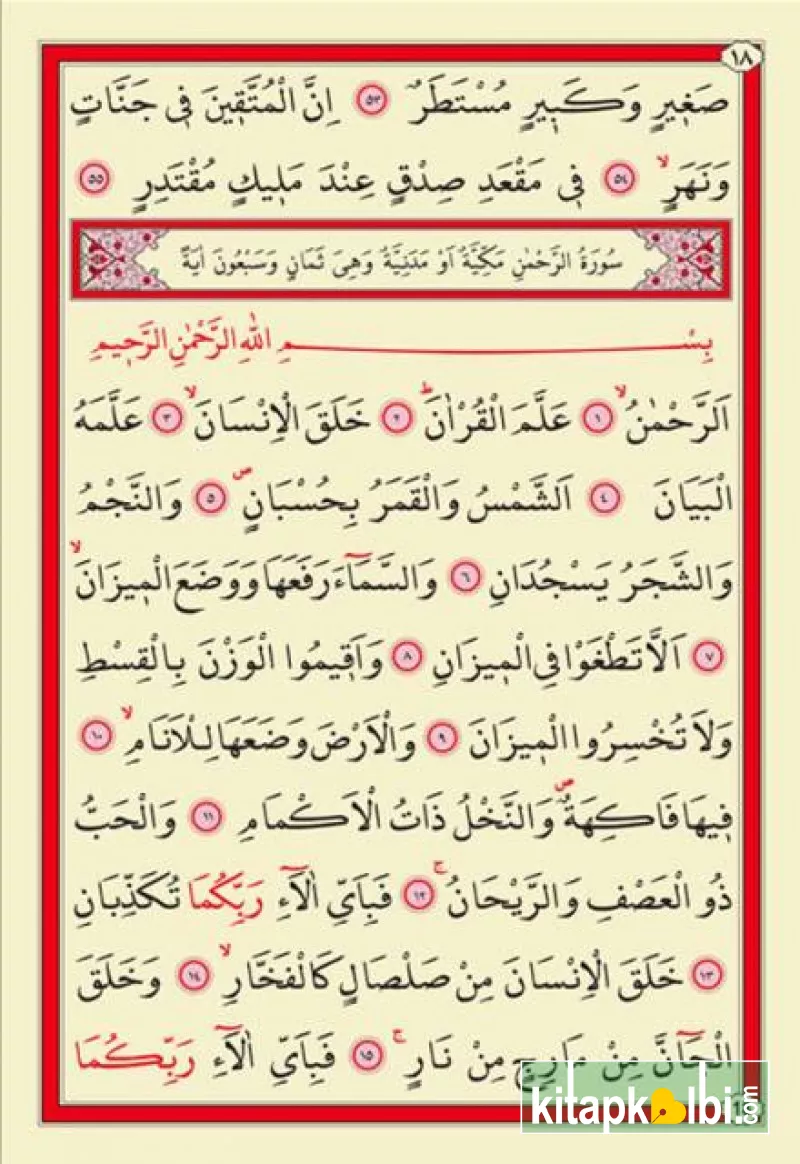 ١٨
صَغ۪يرٍ وَكَب۪يرٍ مُسْتَطَرٌ ﴿٥٣﴾ اِنَّ الْمُتَّق۪ينَ ف۪ي جَنَّاتٍ
وَنَهَرٍۙ ﴿٥٤﴾ ف۪ي مَقْعَدِ صِدْقٍ عِنْدَ مَل۪يكٍ مُقْتَدِرٍ ﴿٥٥﴾
سُورَةُ الرَّحْمٰنِ مَكِّيَّةٌ اَوْ مَدَنِيَّةٌ وَهِيَ ثَمَانٍ وَسَبْعُونَ اٰيَةً
بِسْمِ اللهِ الرَّحْمٰنِ الرَّح۪يمِ
اَلرَّحْمٰنُۙ ﴿١﴾ عَلَّمَ الْقُرْاٰنَۜ ﴿٢﴾ خَلَقَ الْاِنْسَانَۙ ﴿٣﴾ عَلَّمَهُ
الْبَيَانَ ﴿٤﴾ اَلشَّمْسُ وَالْقَمَرُ بِحُسْبَانٍۖ ﴿٥﴾ وَالنَّجْمُ
وَالشَّجَرُ يَسْجُدَانِ ﴿٦﴾ وَالسَّمَٓاءَ رَفَعَهَا وَوَضَعَ الْم۪يزَانَۙ
﴿٧﴾ اَلَّا تَطْغَوْا فِي الْم۪يزَانِ ﴿٨﴾ وَاَق۪يمُوا الْوَزْنَ بِالْقِسْطِ
وَلَا تُخْسِرُوا الْم۪يزَانَ ﴿٩﴾ وَالْاَرْضَ وَضَعَهَا لِلْاَنَامِۙ ﴿١٠﴾
ف۪يهَا فَاكِهَةٌۖ وَالنَّخْلُ ذَاتُ الْاَكْمَامِ ﴿١١﴾ وَالْحَبُّ
ذُو الْعَصْفِ وَالرَّيْحَانُۚ ﴿١٢﴾ فَبِاَيِّ اٰلَٓاءِ رَبِّكُمَا تُكَذِّبَانِ
﴿١٣﴾ خَلَقَ الْاِنْسَانَ مِنْ صَلْصَالٍ كَالْفَخَّارِۙ ﴿١٤﴾ وَخَلَقَ
الْجَٓانَّ مِنْ مَارِجٍ مِنْ نَارٍۚ ﴿١٥﴾ فَبِاَيِّ اٰلَٓاءِ رَبِّكُمَا
kitapkalbi.com